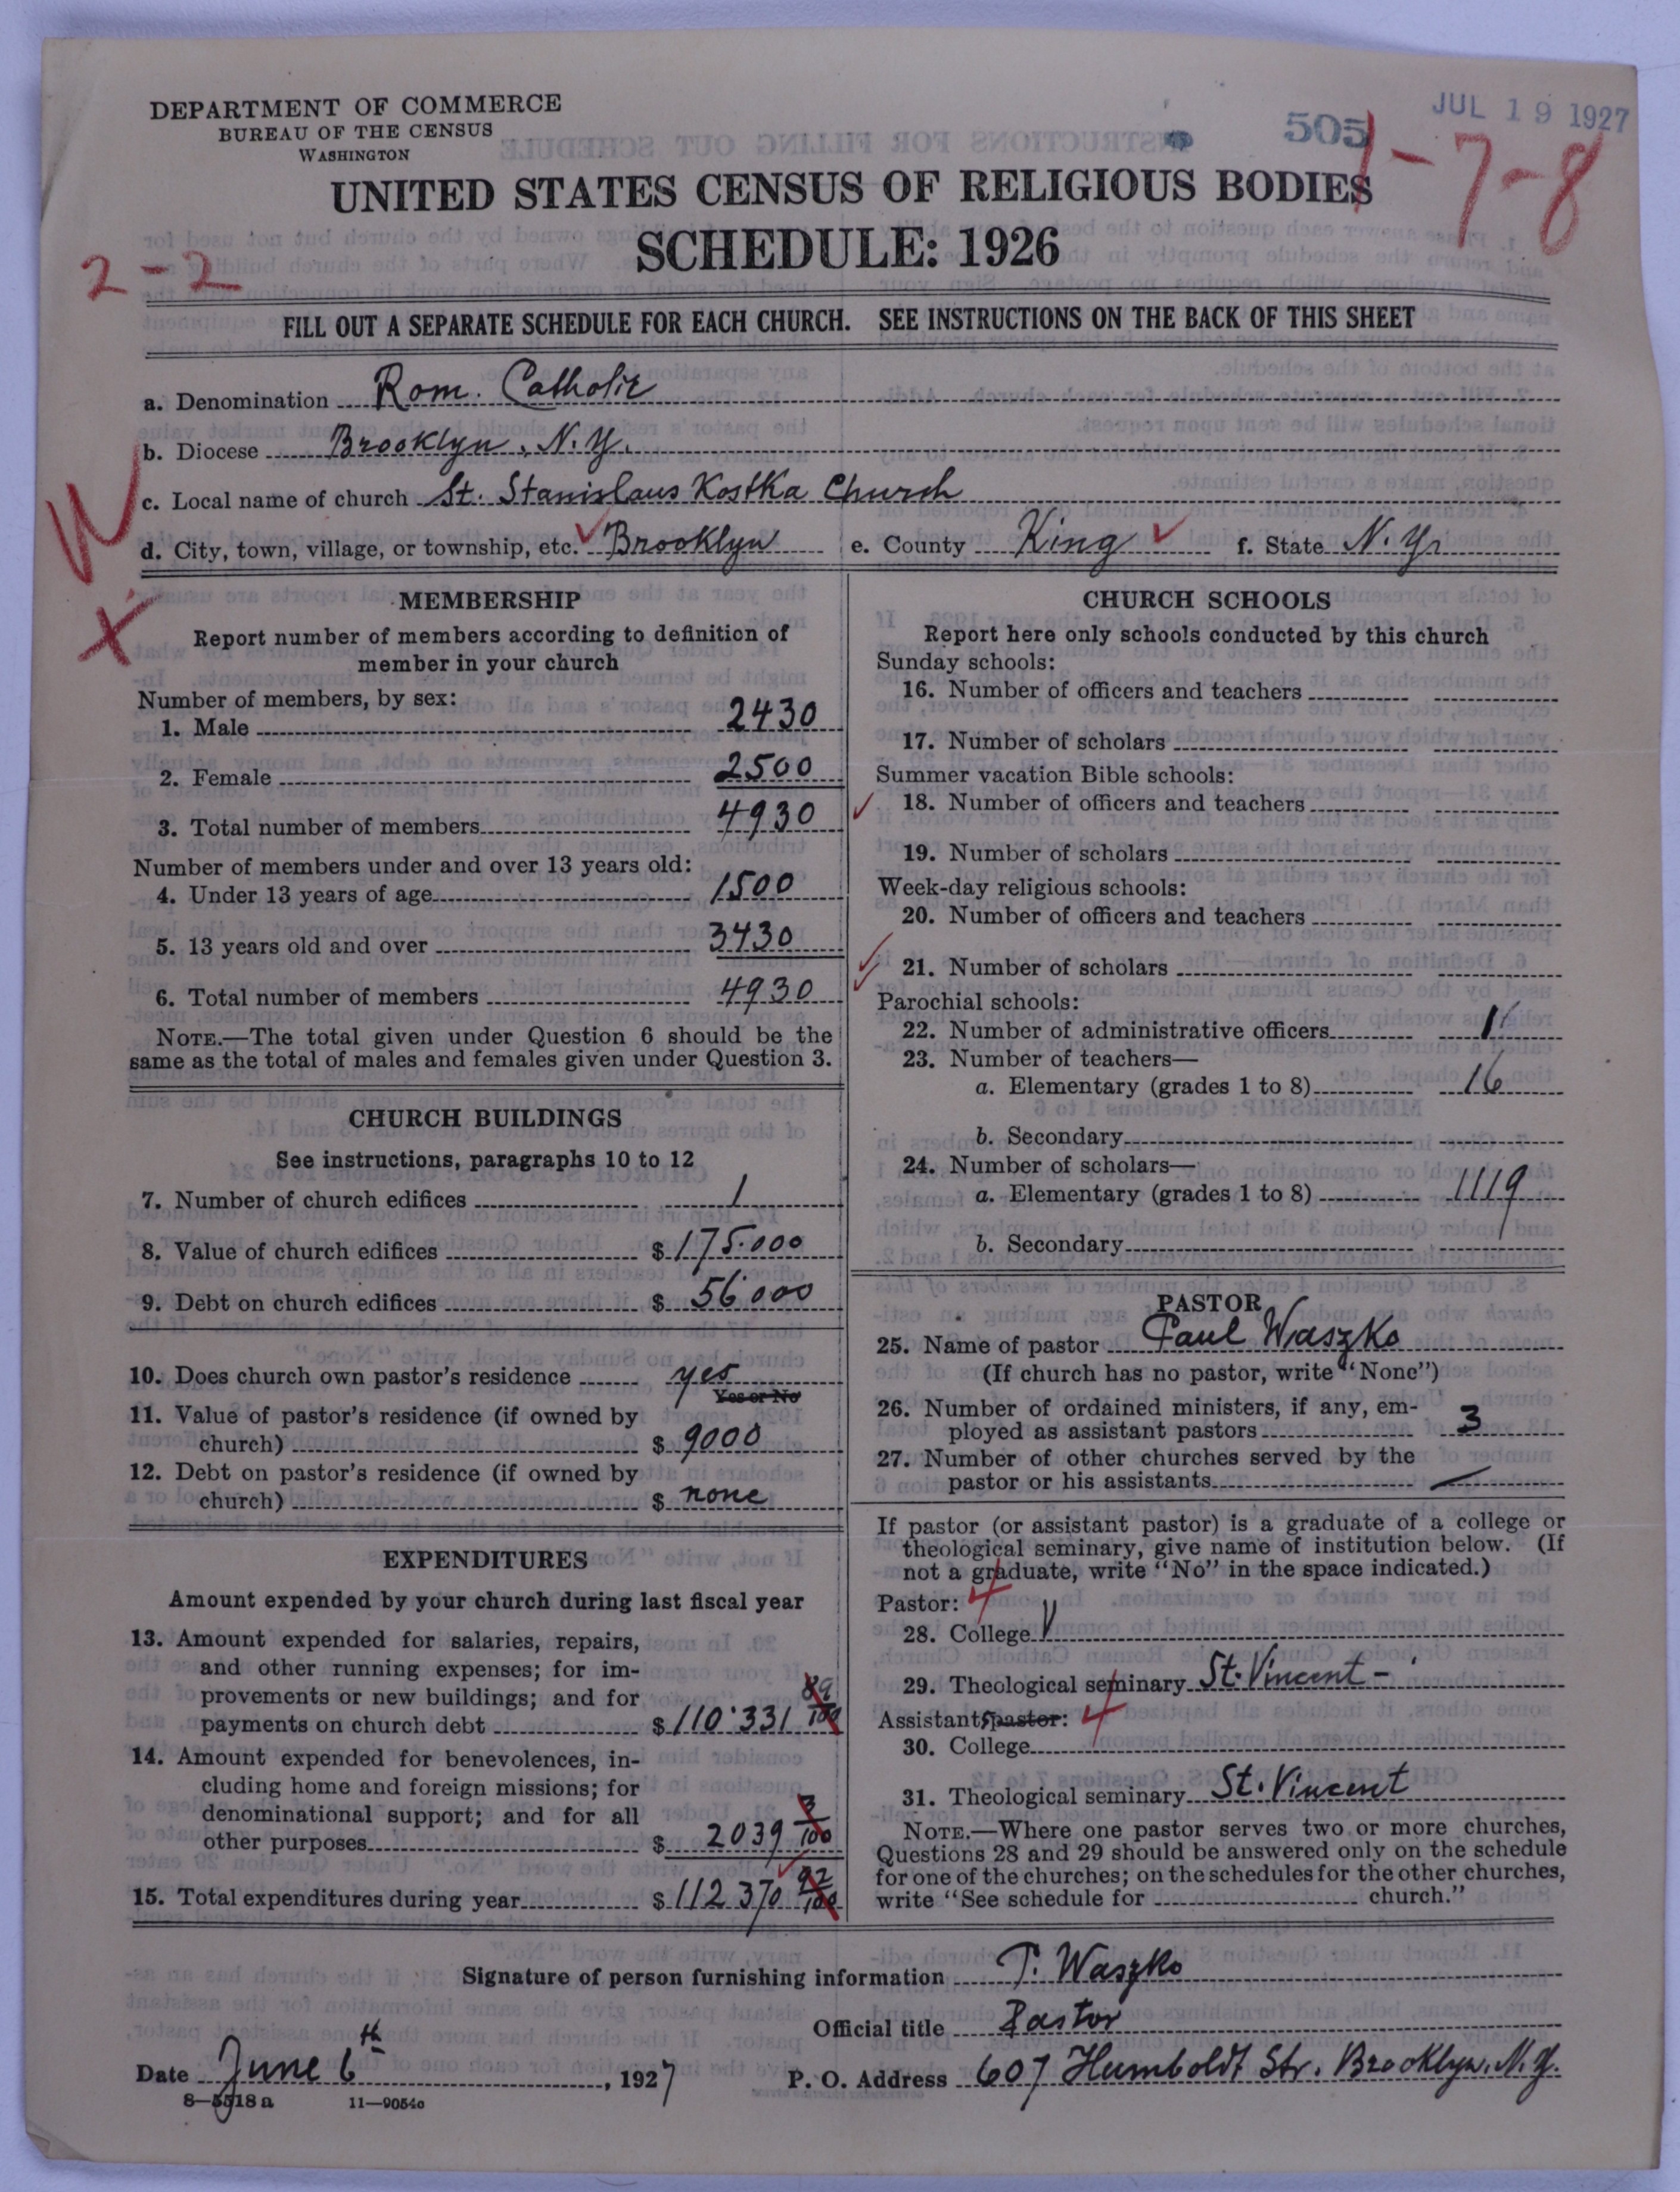 DEPARTMENT OF COMMERCE
BUREAU OF THE CENSUS
WASHINGTON
505
JUL 19 1927
1-7-8
UNITED STATES CENSUS OF RELIGIOUS BODIES
SCHEDULE: 1926
2-2
FILL OUT A SEPARATE SCHEDULE FOR EACH CHURCH. SEE INSTRUCTIONS ON THE BACK OF THIS SHEET
a. Denomination Rom. Catholic
b. Diocese Brooklyn, N.Y.
c. Local name of church St. Stanislaus Kostka Church
d. City, town, village, or township, etc. Brooklyn e. County King f. State N.Y.
MEMBERSHIP
Report number of members according to definition of
member in your church
Number of members, by sex:
1. Male 2430
2. Female 2500
3. Total number of members 4930
Number of members under and over 13 years old:
4. Under 13 years of age 1500
5. 13 years old and over 3430
6. Total number of members 4930
NOTE.—The total given under Question 6 should be the
same as the total of males and females given under Question 3.
CHURCH BUILDINGS
See instructions, paragraphs 10 to 12
7. Number of church edifices 1
8. Value of church edifices $ 175.000
9. Debt on church edifices $ 56000
10. Does church own pastor's residence yes
Yes or No
11. Value of pastor's residence (if owned by
church) $ 9000
12. Debt on pastor's residence (if owned by
church) $ none
EXPENDITURES
Amount expended by your church during last fiscal year
13. Amount expended for salaries, repairs,
and other running expenses; for im-
provements or new buildings; and for
payments on church debt $ 110.331 89/100
14. Amount expended for benevolences, in-
cluding home and foreign missions; for
denominational support; and for all
other purposes $ 2039 3/100
15. Total expenditures during year $ 112370 92/100
CHURCH SCHOOLS
Report here only schools conducted by this church
Sunday schools:
16. Number of officers and teachers
17. Number of scholars
Summer vacation Bible schools:
18. Number of officers and teachers
19. Number of scholars
Week-day religious schools:
20. Number of officers and teachers
21. Number of scholars
Parochial schools:
22. Number of administrative officers
23. Number of teachers—
a. Elementary (grades 1 to 8) 16
b. Secondary
24. Number of scholars—
a. Elementary (grades 1 to 8) 1119
b. Secondary
PASTOR
25. Name of pastor Paul Waszko
(If church has no pastor, write "None")
26. Number of ordained ministers, if any, em-
ployed as assistant pastors 3
27. Number of other churches served by the
pastor or his assistants —
If pastor (or assistant pastor) is a graduate of a college or
theological seminary, give name of institution below. (If
not a graduate, write "No" in the space indicated.)
Pastor: 4
28. College
29. Theological seminary St. Vincent -
Assistants pastor: 4
30. College
31. Theological seminary St. Vincent
NOTE.—Where one pastor serves two or more churches,
Questions 28 and 29 should be answered only on the schedule
for one of the churches; on the schedules for the other churches,
write "See schedule for church."
Signature of person furnishing information P. Waszko
Official title Pastor
Date June 6th, 1927 P. O. Address 607 Humboldt Str. Brooklyn, N.Y.
8—5518 a 11—9054c